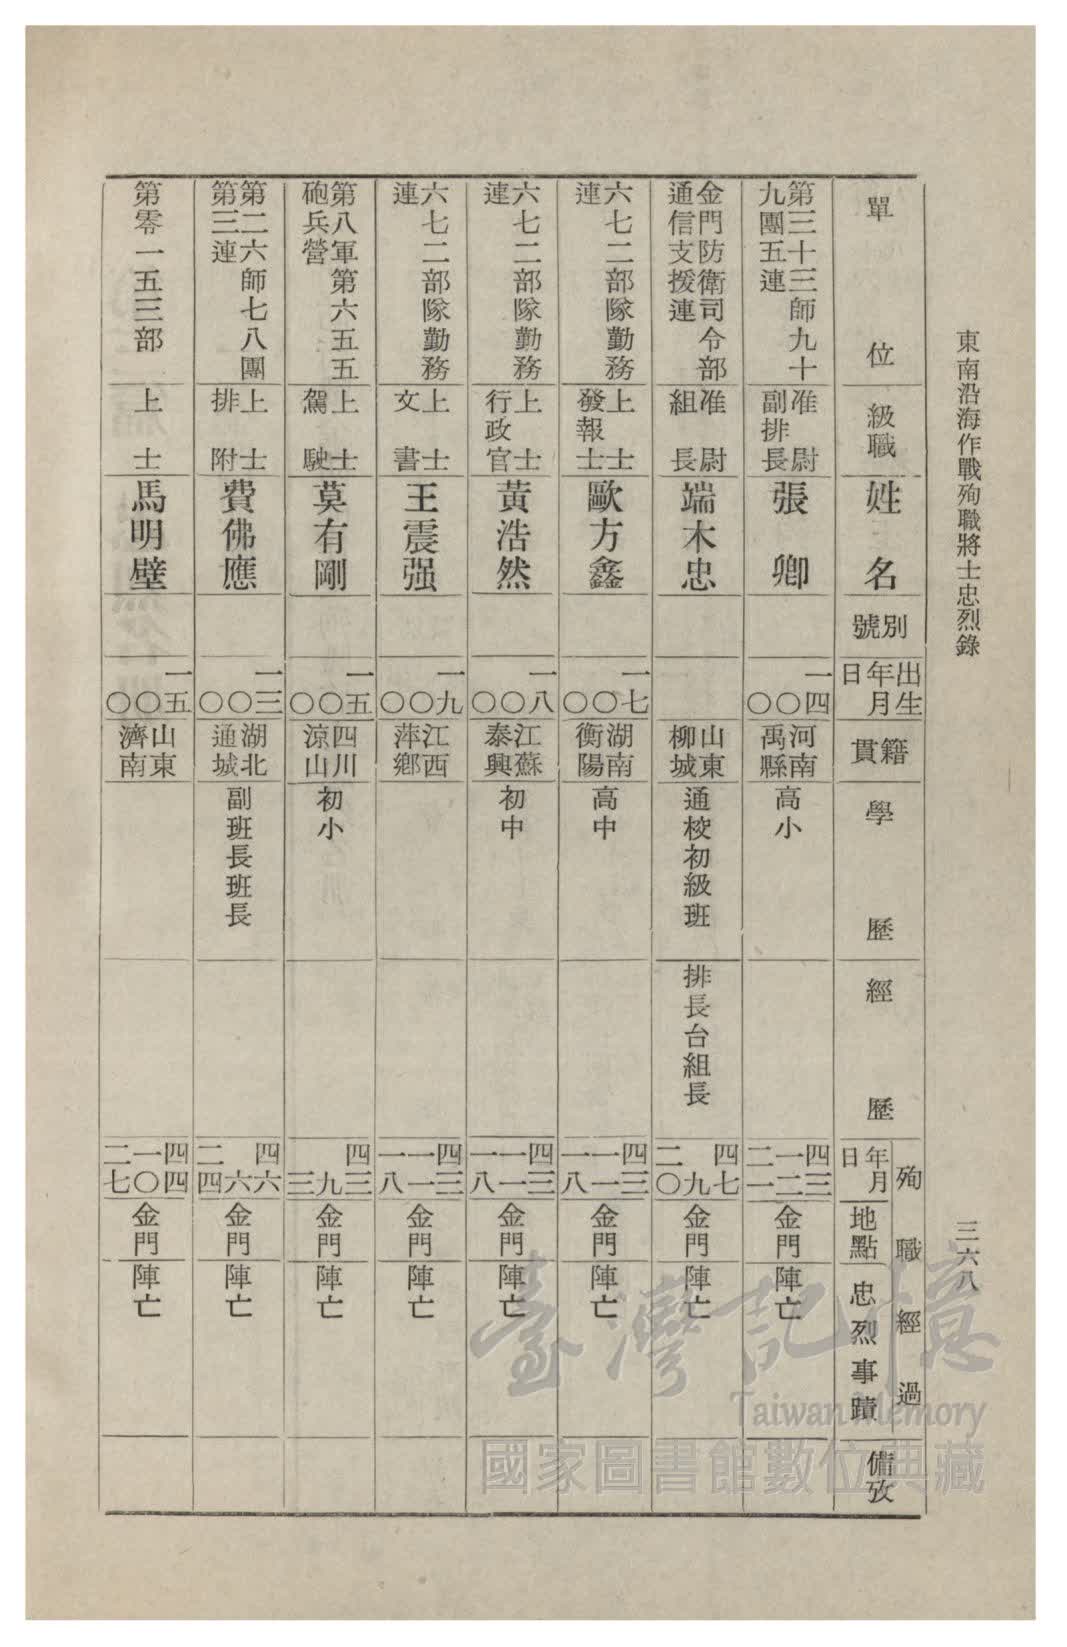 東南沿海作戰殉職將士忠烈錄
三六八
單位
級職
姓名
別號
出生
年月
日
籍貫
學歷
經歷
殉職經過
年月
日
地點
忠烈事蹟
備攷
第三十三師九十
九團五連
准尉
副排長
張卿
一四
〇
〇
河南
禹縣
高小
四三
一二
二一
金門
陣亡
金門防衛司令部
通信支援連
准尉
組長
端木忠
山東
柳城
通校初級班
排長台組長
四七
九
二〇
金門
陣亡
六七二部隊勤務
連
上士
發報士
歐方鑫
一七
〇
〇
湖南
衡陽
高中
四三
一一
一八
金門
陣亡
六七二部隊勤務
連
上士
行政官
黃浩然
一八
〇
〇
江蘇
泰興
初中
四三
一一
一八
金門
陣亡
六七二部隊勤務
連
上士
文書
王震强
一九
〇
〇
江西
萍鄉
四三
一一
一八
金門
陣亡
第八軍第六五五
砲兵營
上士
駕駛
莫有剛
一五
〇
〇
四川
涼山
初小
四三
九
三
金門
陣亡
第二六師七八團
第三連
上士
排附
費佛應
一三
〇
〇
湖北
通城
副班長班長
四六
六
二四
金門
陣亡
第零一五三部
上士
馬明壁
一五
〇
〇
山東
濟南
四四
一〇
二七
金門
陣亡
臺灣記憶
Taiwan Memory
國家圖書館數位典藏